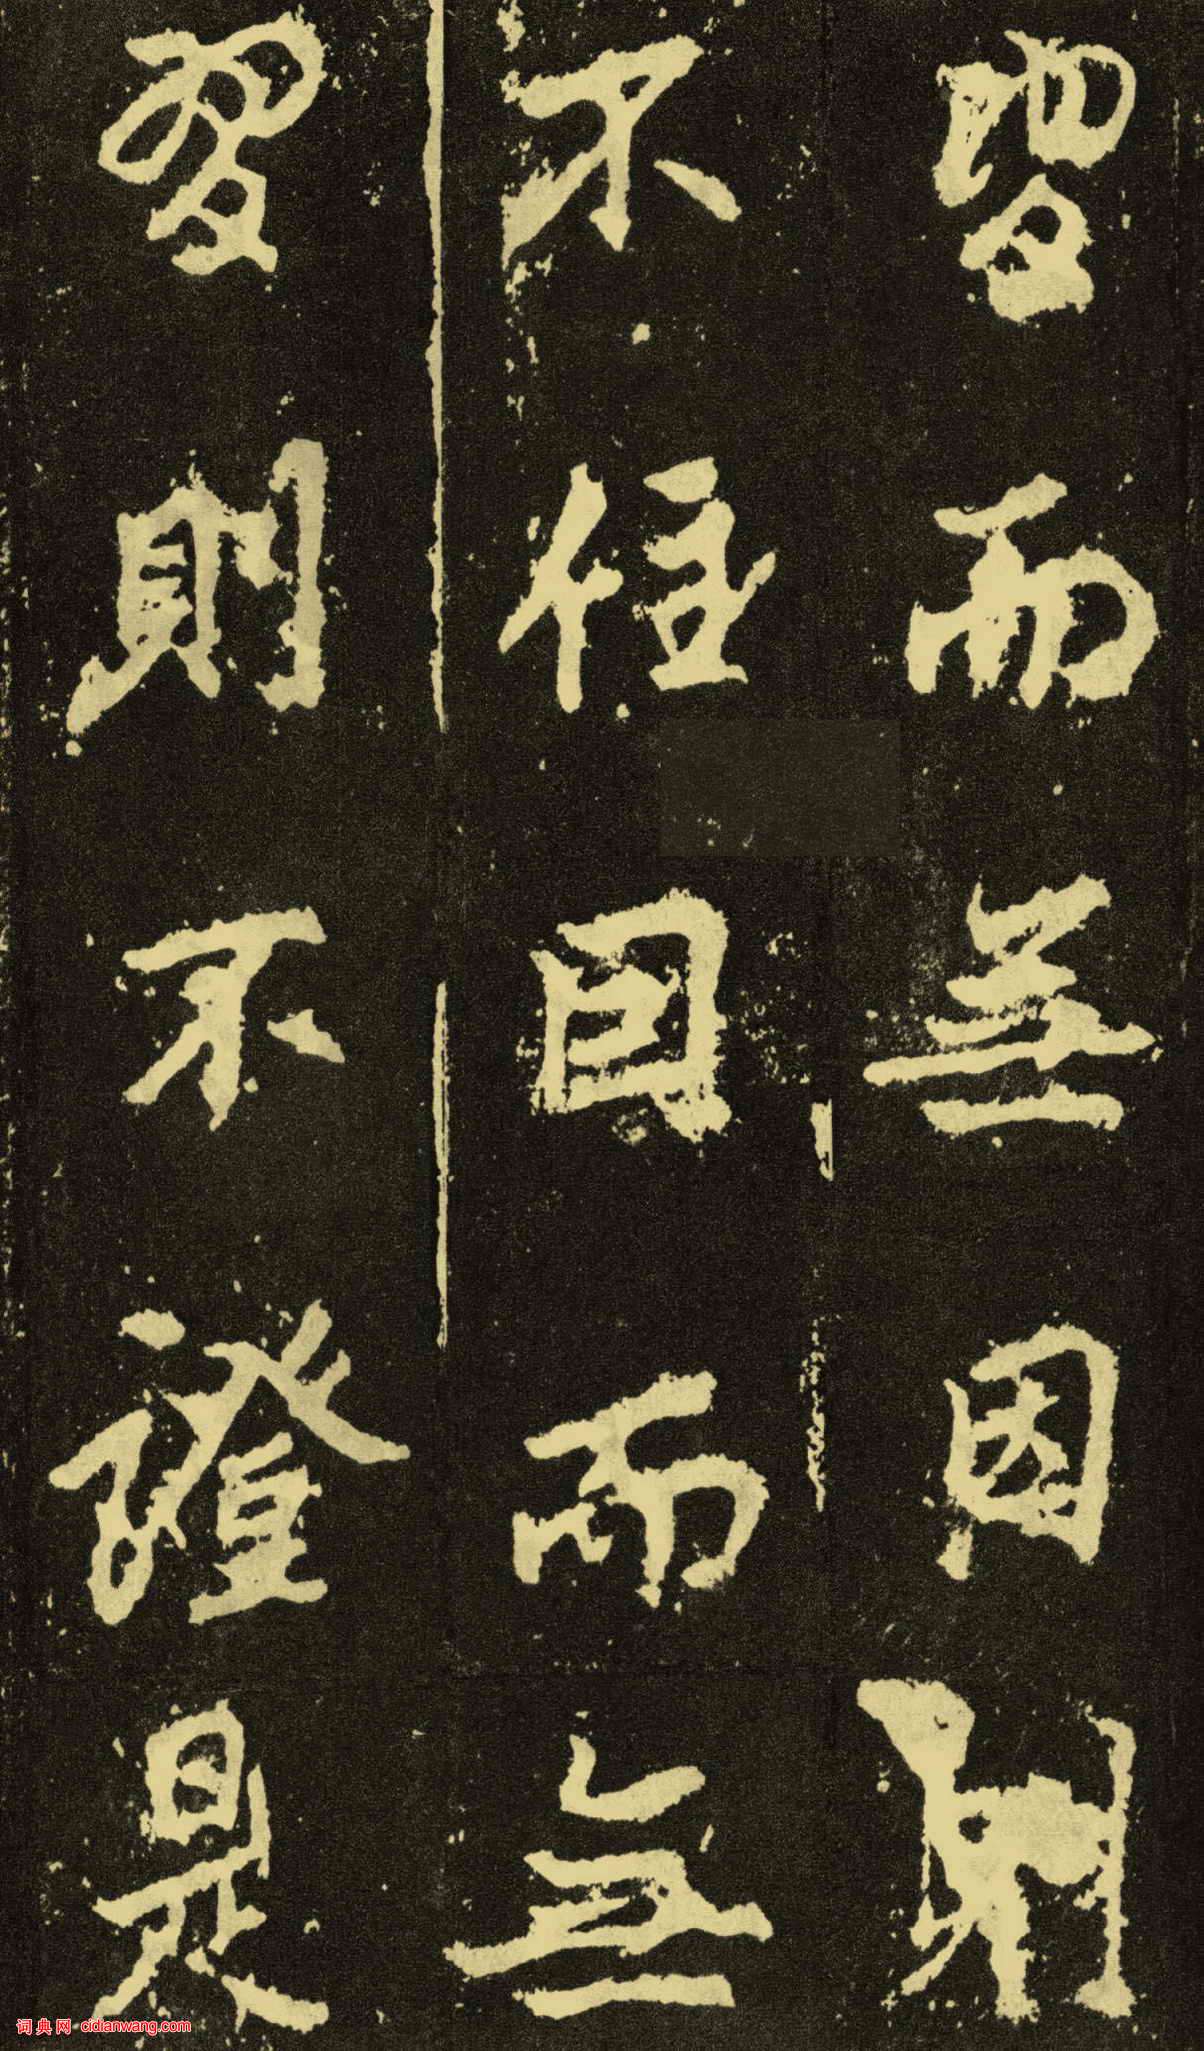 習而無因則
不住因而無
習則不證是
词典网 cidianwang.com